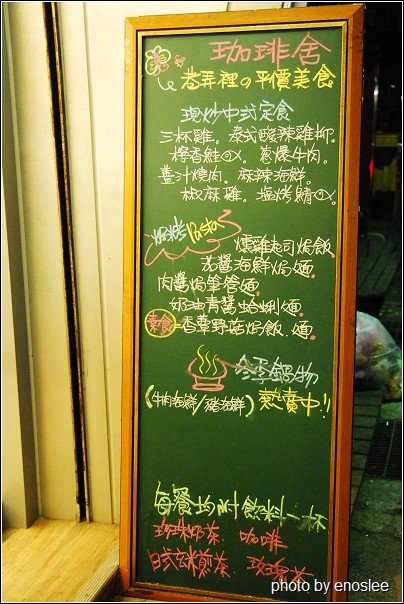 珈琲舍
巷弄裡の平價美食
現炒中式定食
三杯雞。泰式酸辣雞柳。
檸香鮭魚。蔥爆牛肉。
薑汁燒肉。麻辣海鮮。
椒麻雞。塩烤鯖魚。
焗烤Pasta
燻雞起司焗飯.
茄醬海鮮焗麵.
肉醬焗筆管麵.
奶油青醬蛤蜊麵.
素食-香草野菇焗飯.麵.
冬季鍋物
(牛肉海鮮/豬海鮮) 熱賣中!!
每餐均附飲料一杯
珍珠奶茶 咖啡
日式玄米煎茶 玫瑰茶
photo by enoslee